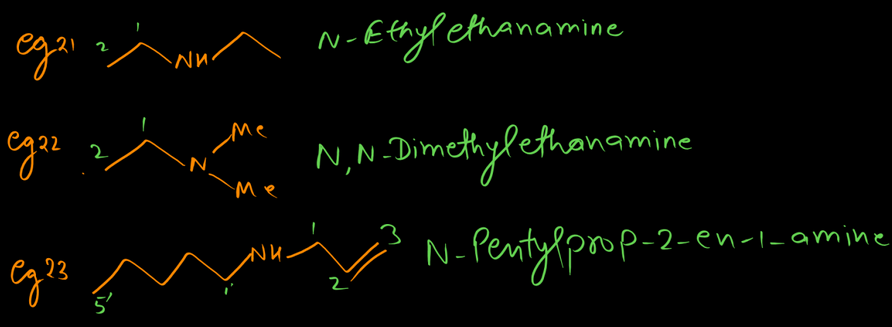 eg21 2 1 NH N-Ethylethanamine
eg22 2 1 N Me Me N,N-Dimethylethanamine
eg23 5' 1' NH 1 2 3 N-Pentylprop-2-en-1-amine